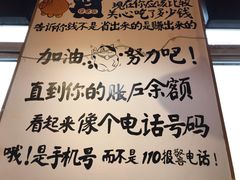 现在你应该比较
关心吃了多少钱
告诉你钱不是省出来的是赚出来的
加油 努力吧!
直到你的账户余额
看起来像个电话号码
哦!是手机号 而不是110报警电话!